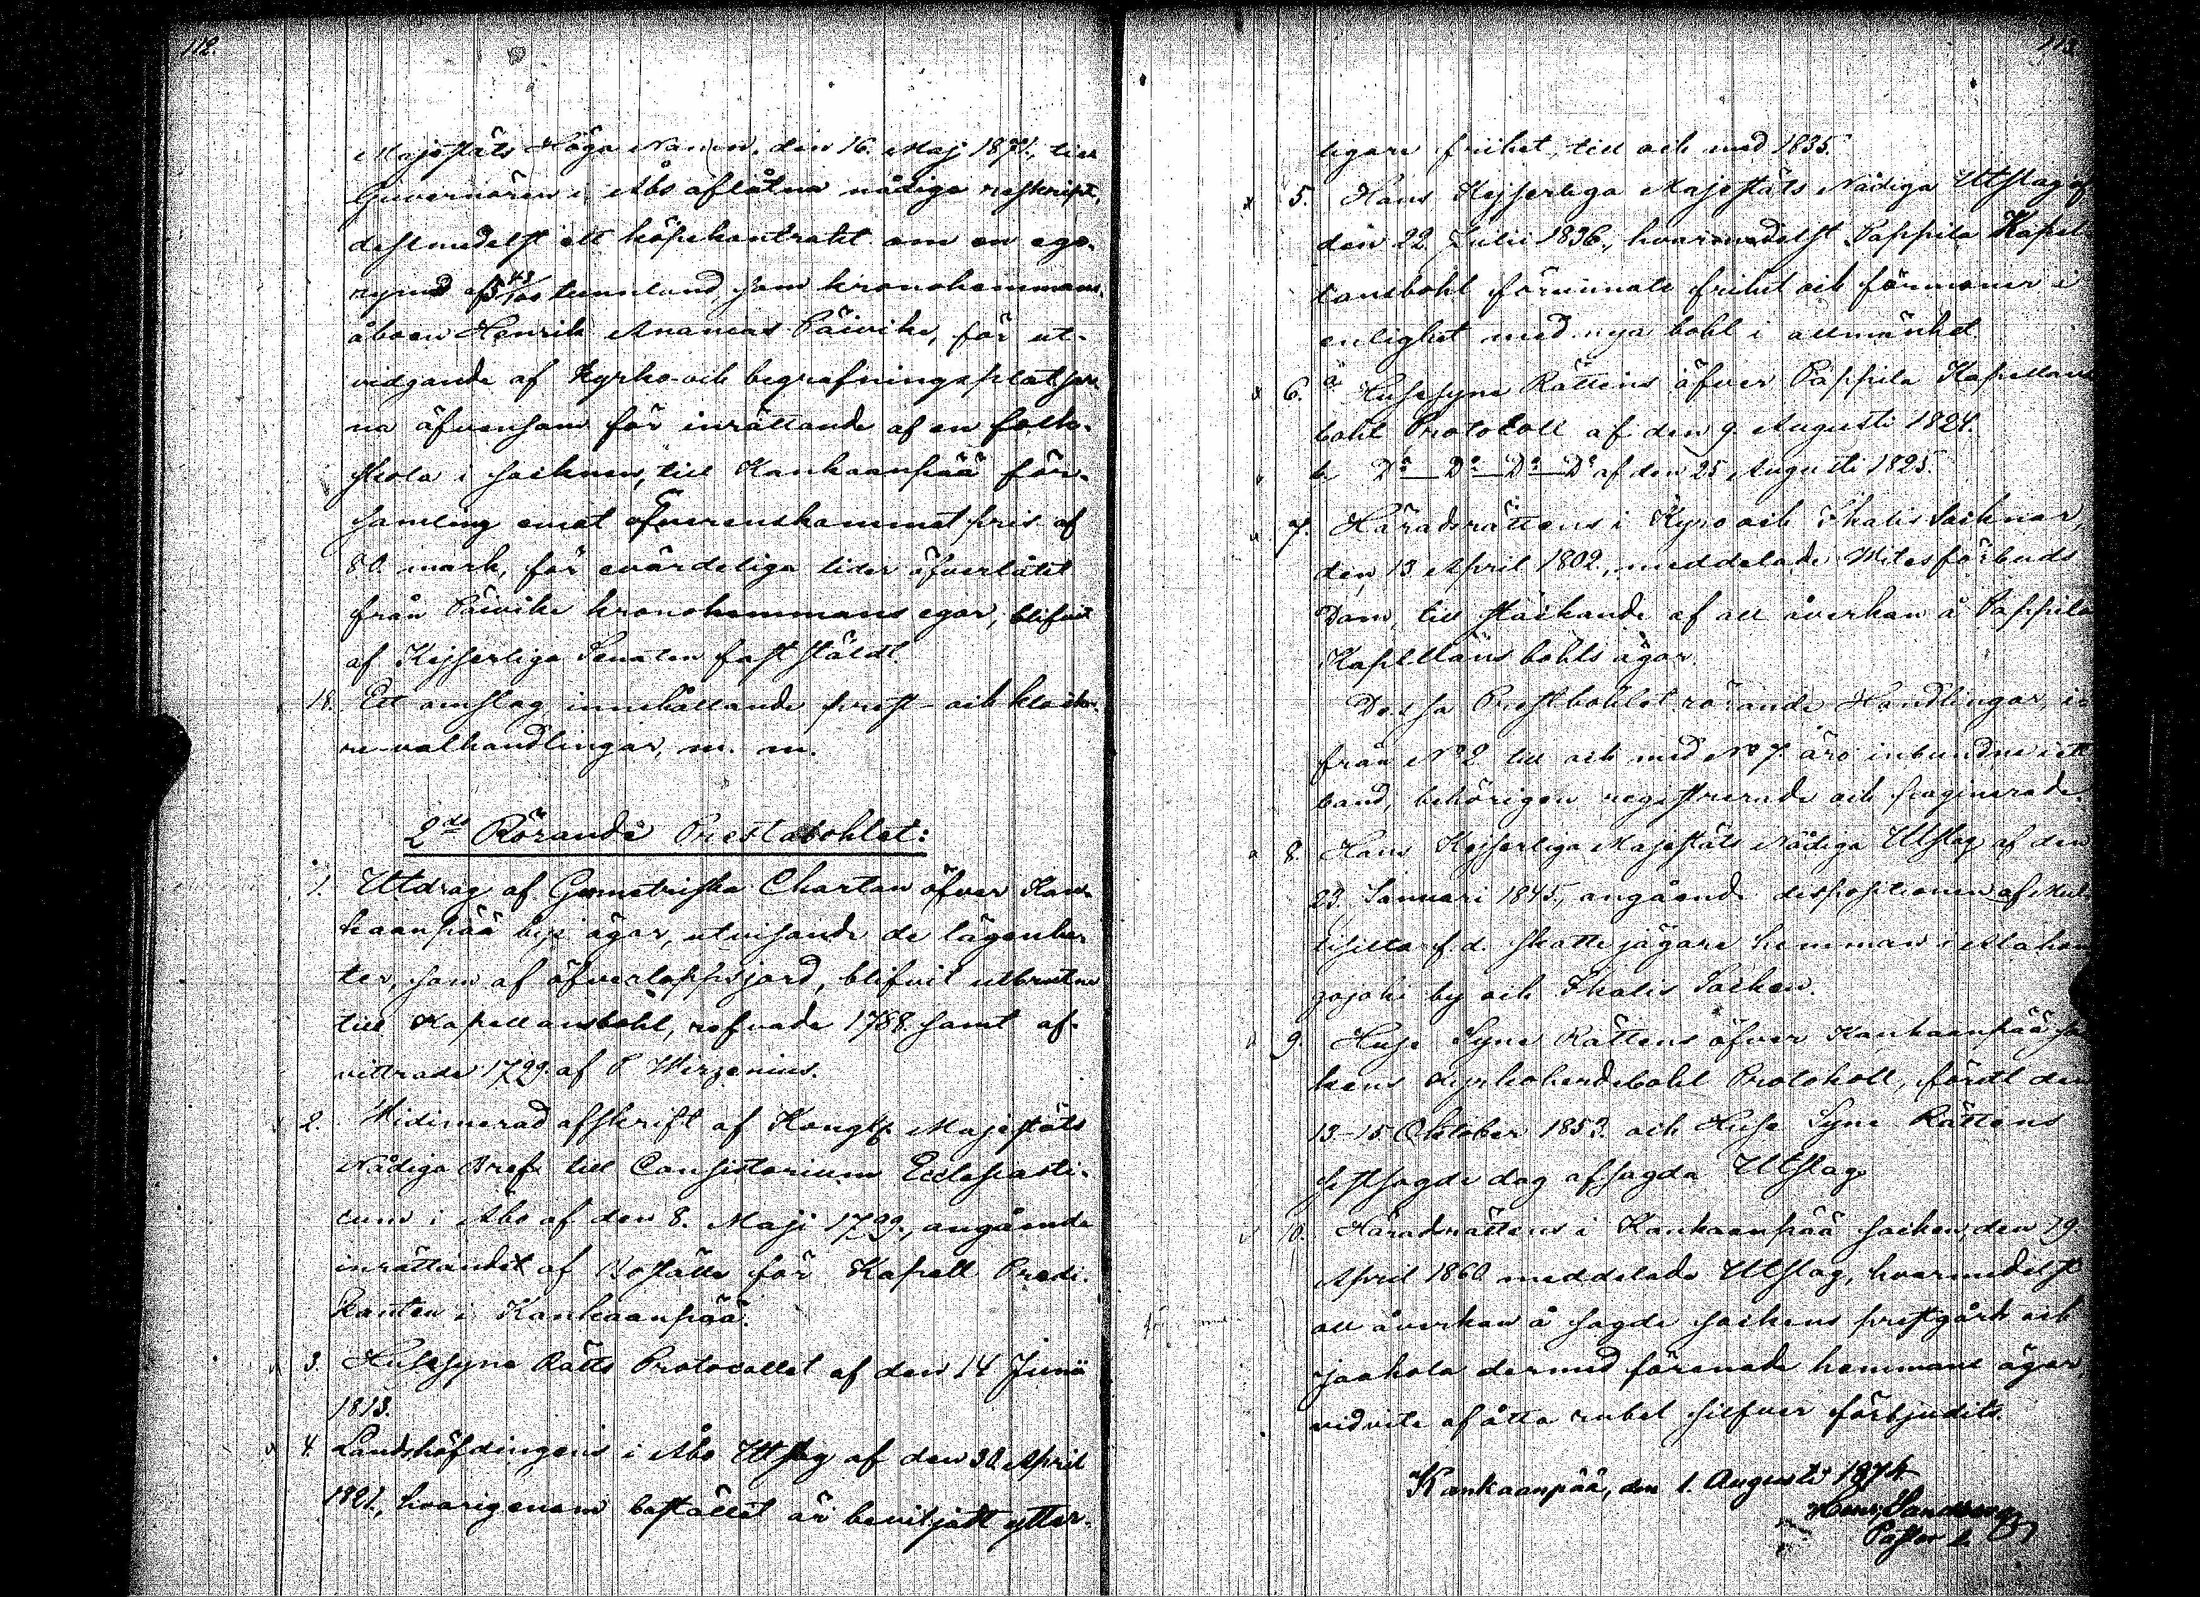 112.
Majestäts Höga Namn, den 16. Maj 1871, till
Guvernören i Åbo aflåtna nådiga reskript,
destmedelst ett köpekontrakt om en ego-
rymd af 3 43/100 tunnland, som kronohemmans
åboen Henrik Ananias Päivike, för ut-
vidgande af kyrko- och begrafningsplatser-
na äfvensom för inrättande af en folk-
skola i socknen, till Kankaanpää för-
samling emot öfverenskommet pris af
80. mark, för evärdeliga tider öfverlåtit
från Päivike kronohemmans egor, blifvit
af Kejserliga Senaten fastställdt.
18. Ett omslag innehållande prest- och klocka-
re-valhandlingar, m. m.
2do Rörande Prestabohlet:
1. Utdrag af Geometriska Chartan öfver Kan-
kaanpää bys ägor, utvisande de lägenhe-
ter, som af öfverloppsjord, blifvit utbrutna
till Kapellansbohl, refvade 1788 samt af-
vittrade 1799 af P Wirzenius.
2. Widimerad afskrift af Kongl. Majestäts
Nådiga Bref till Consistorium Ecclesiasti-
cum i Åbo af den 8. Maji 1799, angående
inrättandet af Boställe för Kapell Predi-
kanten i Kankaanpää.
3. Husesyns Rätts Protocollet af den 14 Junii
1813.
4. Landshöfdingens i Åbo Utslag af den 30. April
1821, hvarigenom bostället är beviljadt ytter-
113.
ligare frihet, till och med 1835.
5. Hans Kejserliga Majestäts Nådiga Utslag af
den 22 Julii 1836, hvarmedelst Pappila Kapel-
lansbohl förunnats frihet och förmoner i
enlighet med nya bohl i allmänhet.
6. a. Husesyns Rättens öfver Pappila Kapellans
bohl Protokoll af den 9. Augusti 1824.
b. Do—Do—Do—Do af den 25 Augusti 1825.
7. Häradsrättens i Kyro och Ikalis Socknar,
den 13 April 1802, meddelade Witesförbuds
Dom, till stäckande af all åverkan å Pappila
Kapellans bohls ägor.
Dessa Prestbohlet rörande Handlingar,
från No 2 till och med No 7. äro inbundne i ett
band, behörigen registrerade och paginerade.
8. Hans Kejserliga Majestäts Nådiga Utslag af den
23. Januari 1845, angående dispositionen af
f. d. skattejägare hemman i
by och Ikalis Socken.
9. Huse Syns Rättens öfver Kankaanpää soc-
kens Kyrkoherdebohl Protokoll, fördt den
13-15 Oktober 1853. och Huse Syns Rättens
sistsagde dag afsagda Utslag.
10. Häradsrättens i Kankaanpää socken, den 19.
April 1860 meddelade Utslag, hvarmedelst
all åverkan å sagde sockens prestgård och
dermed förenade hemmans ägor,
vid vite af åtta rubel silfver förbjudits.
Kankaanpää, den 1. Augusti 1874.
Pastor